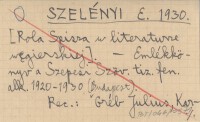 SZELÉNYI E. 1930.
[Rola Spisza w literaturze
węgierskiej] — Emlékkö-
nyv a Szepesi Szöv. tiz. fen.
áll. 1920-1930 (Budapest).
Rec.: Gréb Julius, Kar-